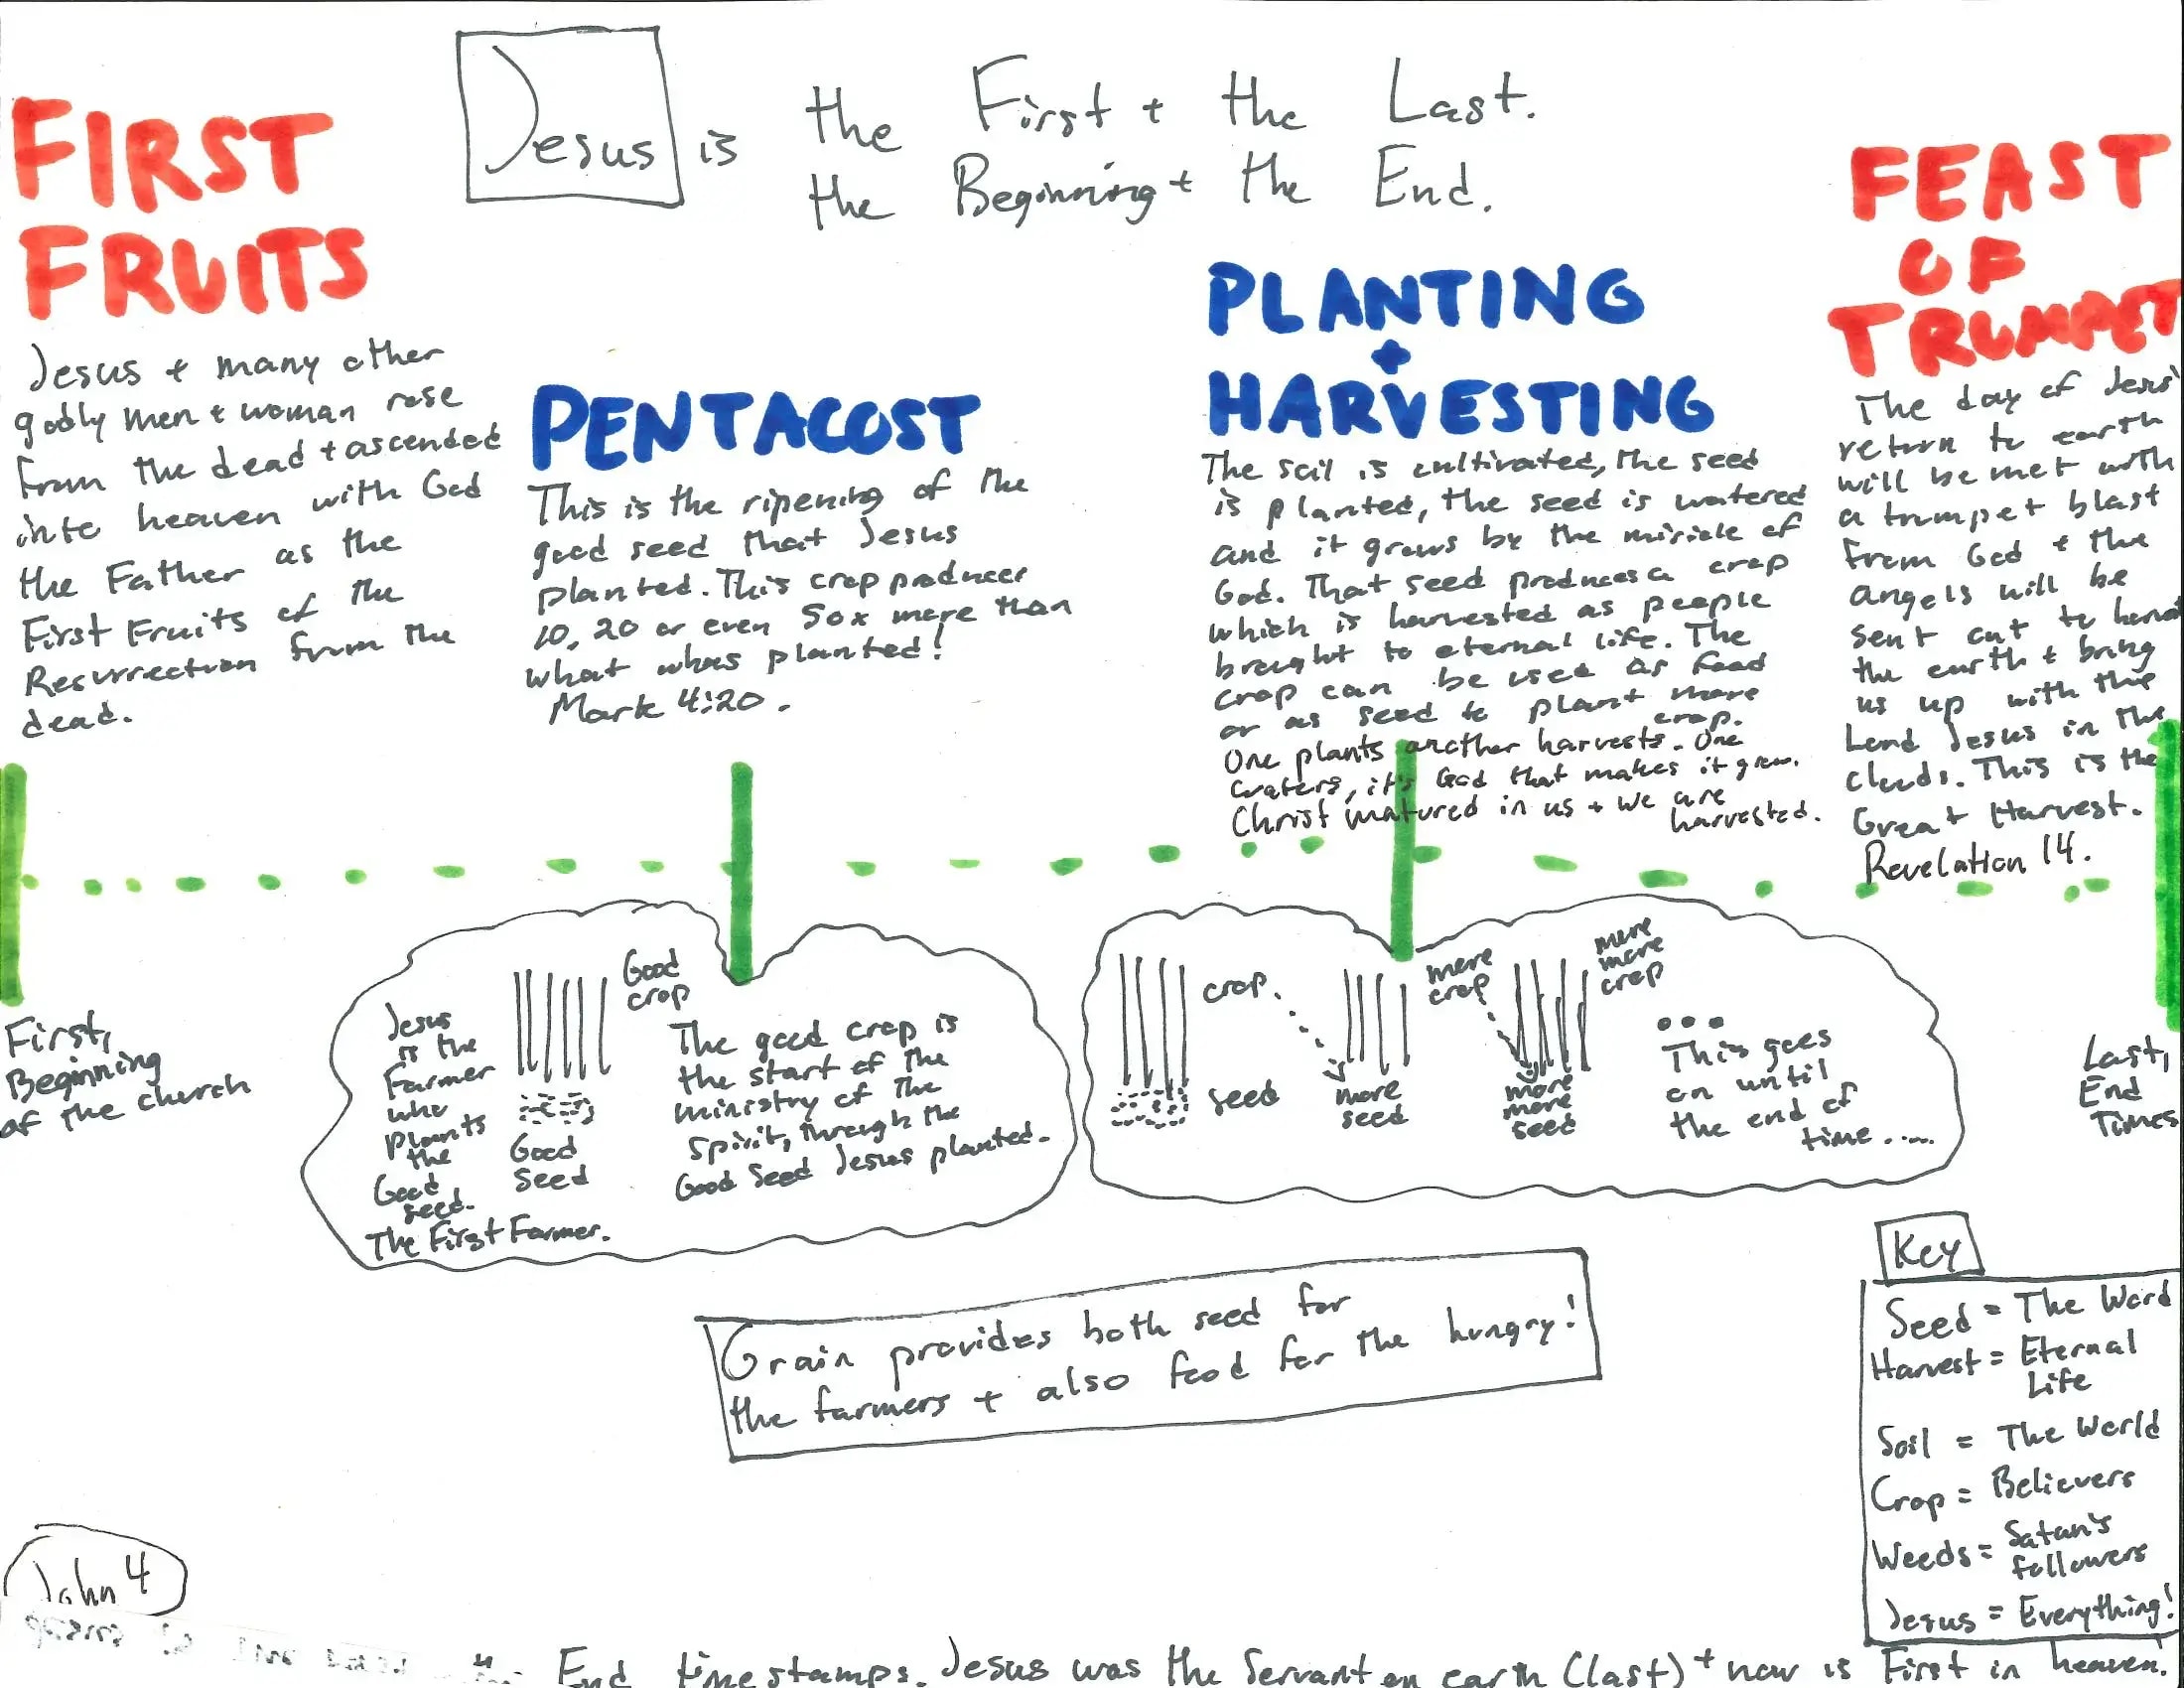 Jesus is the First + the Last.
the Beginning + the End.
FIRST
FRUITS
Jesus + many other
godly men + woman rose
from the dead + ascended
into heaven with God
the Father as the
First Fruits of the
Resurrection from the
dead.
PENTACOST
This is the ripening of the
good seed that Jesus
planted. This crop produces
10, 20 or even 50x more than
what whas planted!
Mark 4:20.
PLANTING
+
HARVESTING
The soil is cultivated, the seed
is planted, the seed is watered
and it grows by the miricle of
God. That seed produces a crop
which is harvested as people
brought to eternal life. The
crop can be used as food
or as seed to plant more
crop.
One plants another harvests. One
waters, it's God that makes it grow.
Christ matured in us + we are
harvested.
FEAST
OF
TRUMPET
The day of Jesus'
return to earth
will be met with
a trumpet blast
from God + the
angels will be
sent out to
the earth + bring
us up with the
Lord Jesus in the
clouds. This is the
Great Harvest.
Revelation 14.
First,
Beginning
of the church
Jesus
is the
Farmer
who
plants
the
Good
seed.
The First Farmer.
Good
crop
Good
seed
The good crop is
the start of the
ministry of the
spirit, through the
Good Seed Jesus planted.
crop.
seed
more
crop
more
seed
more
more
crop
more
more
seed
...
This goes
on until
the end of
time.....
Last,
End
Times
Grain provides both seed for
the farmers + also food for the hungry!
Key
Seed = The Word
Harvest = Eternal
Life
Soil = The World
Crop = Believers
Weeds = Satan's
followers
Jesus = Everything!
John 4
End time stamps. Jesus was the Servant on earth (last) + now is First in heaven.